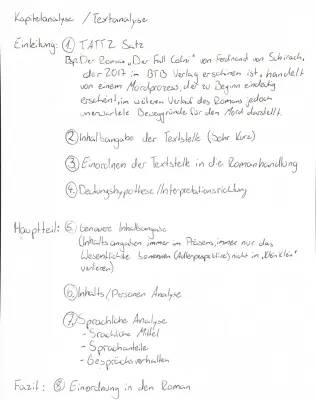 Kapitelanalyse / Textanalyse
Einleitung: ① TATTZ Satz
Bsp: Der Roman „Der Fall Collini" von Ferdinand von Schirach,
der 2017 im BTB Verlag erschienen ist, handelt
von einem Mordprozess, der zu Beginn eindeutig
erscheint, im weiteren Verlauf des Romans jedoch
unerwartete Beweggründe für den Mord darstellt.
② Inhaltsangabe der Textstelle (Sehr Kurz)
③ Einordnen der Textstelle in die Romanhandlung
④ Deutungshypothese/Interpretationsrichtung
Hauptteil: ⑤ Genauere Inhaltsangabe
(Inhaltsangaben immer im Präsens, immer nur das
Wesentliche benennen (Außenperspektive) nicht in „Details"
verlieren)
⑥ Inhalts/Personen Analyse
⑦ Sprachliche Analyse
- Sprachliche Mittel
- Sprachanteile
- Gesprächsverhalten
Fazit: ⑧ Einordnung in den Roman